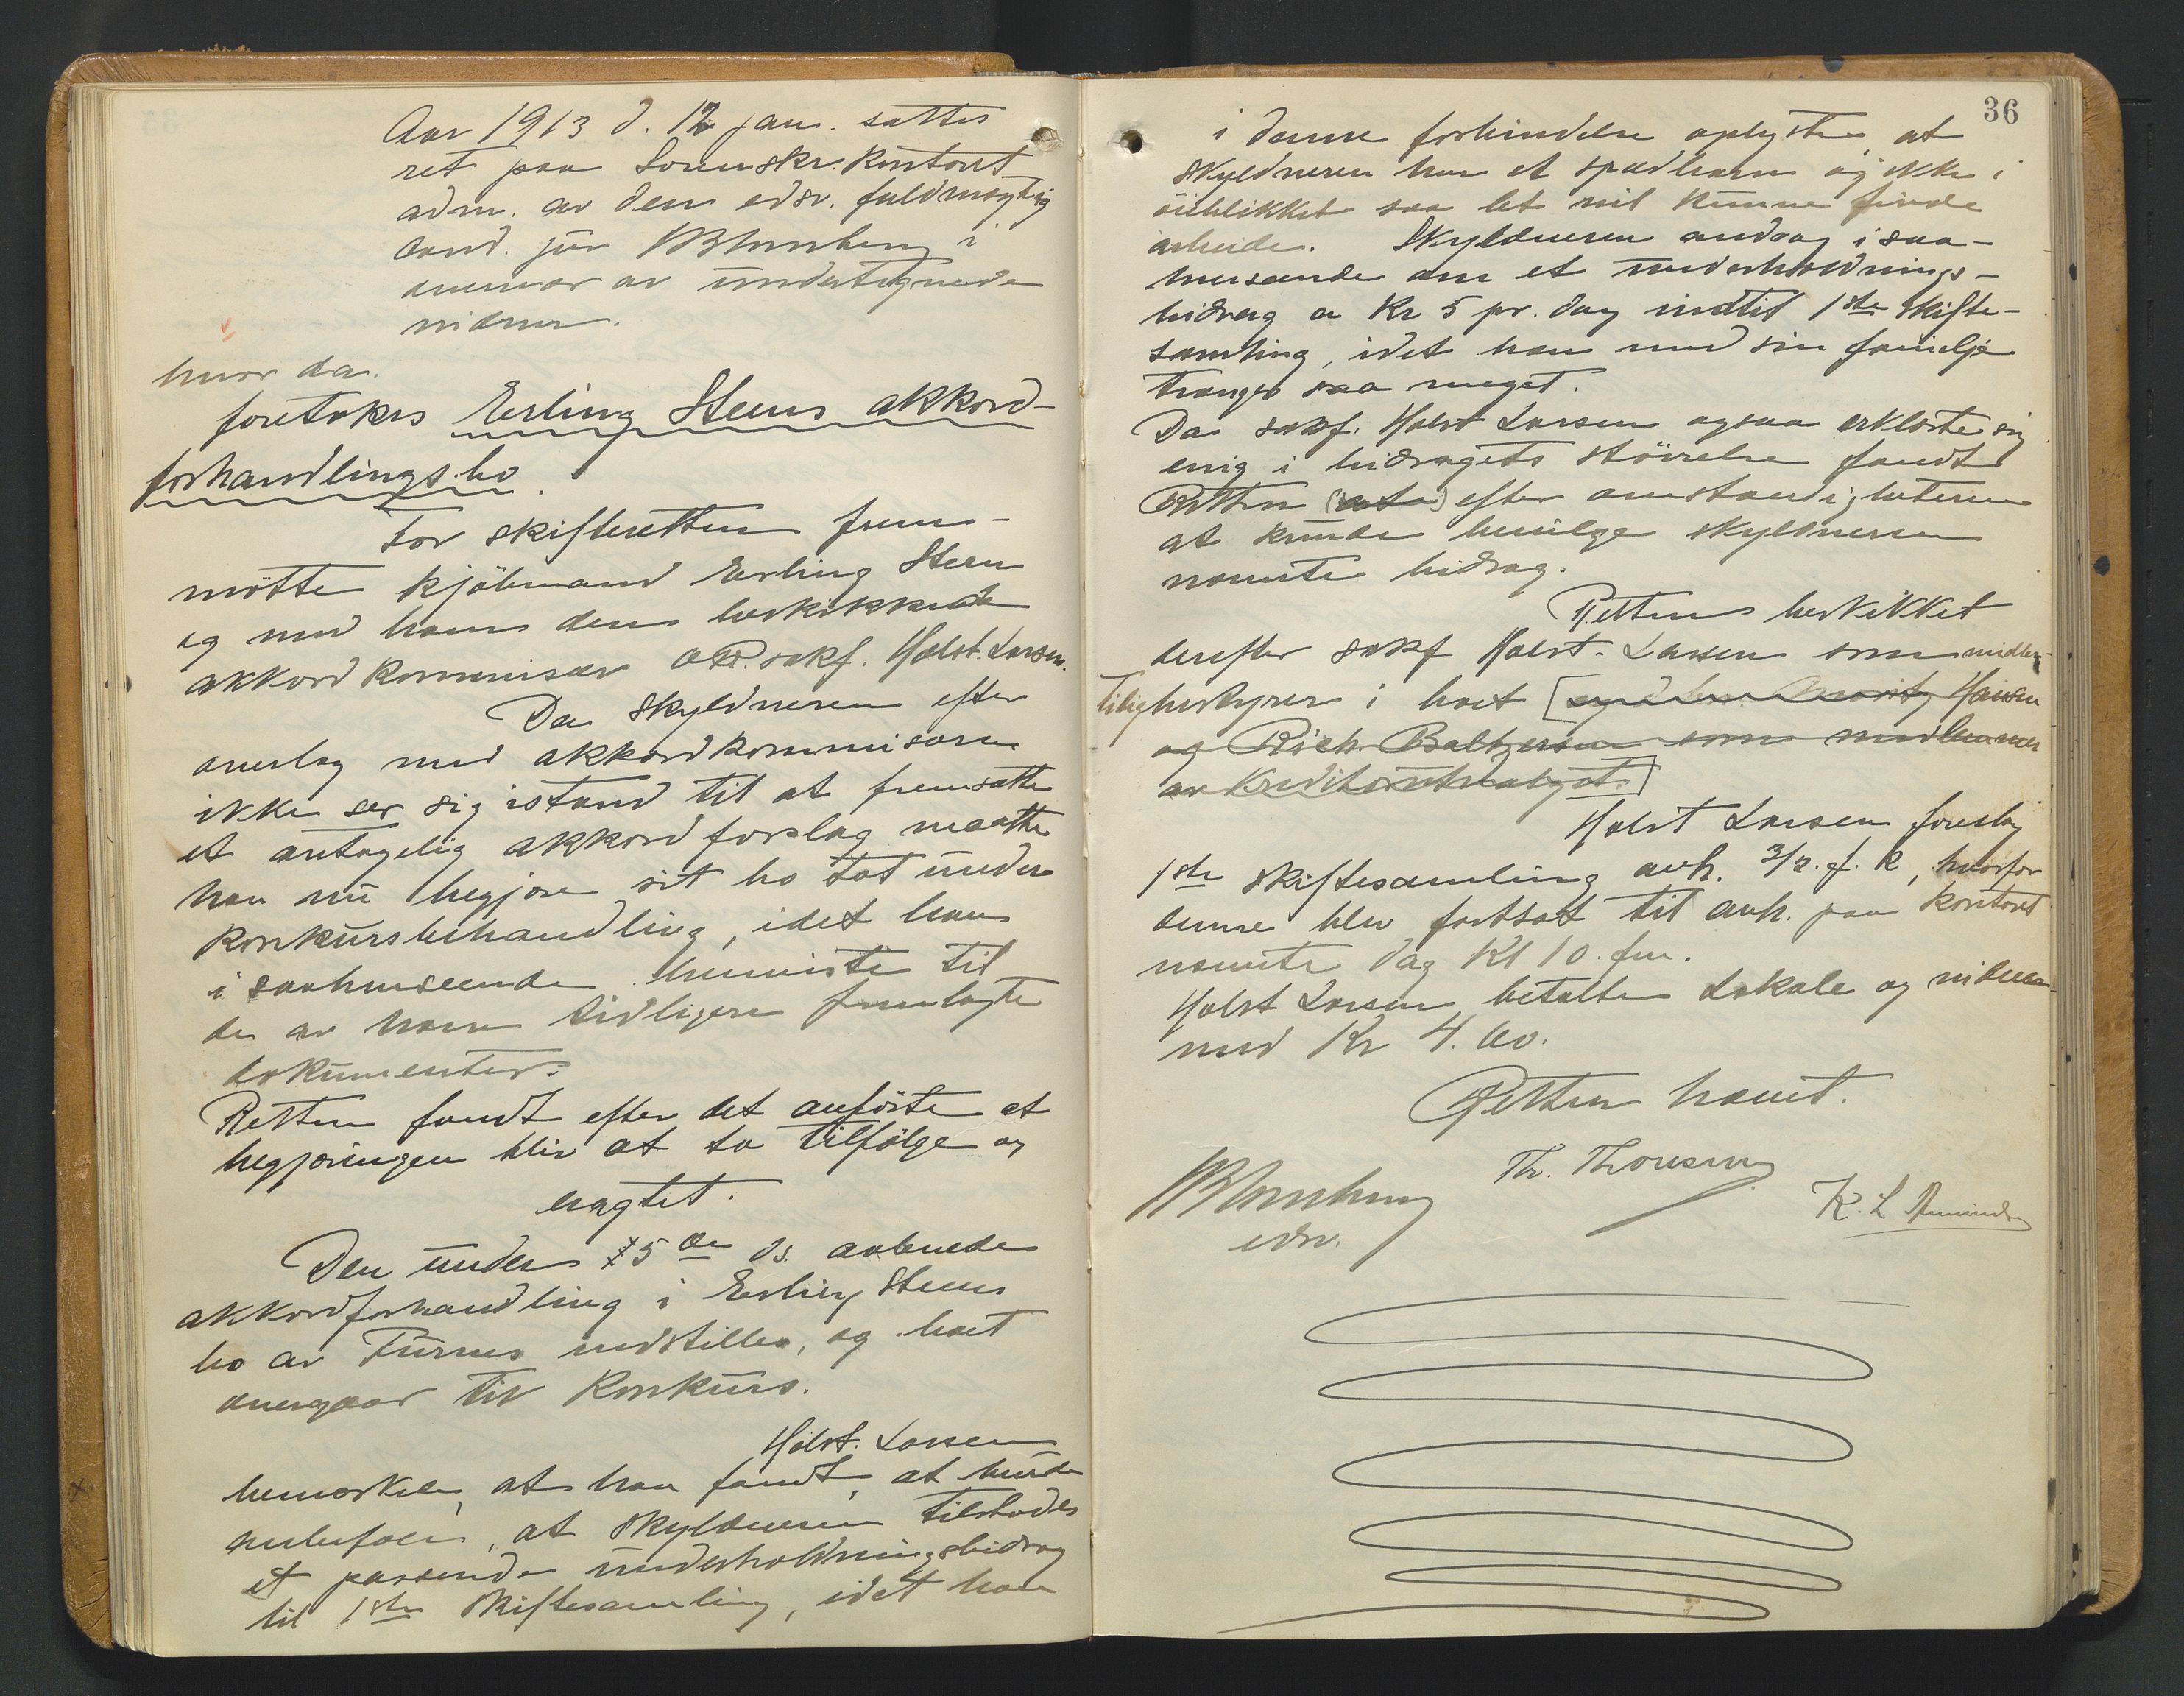 Aar 1913 d. 12 jan. sattes
ret paa Sorenskr. Kontoret
adm. av den edsv. fuldmægtig
cand. jur Blomberg i
overvær av undertegnede
vidner.
hvor da.
foretokes Erling Steens akkord-
forhandlingsbo.
For skifteretten frem-
møtte kjøbmand Erling Steen
og med ham den beskikkede
akkordkommisær O.R. sakf. Holst. Larsen.
Da Skyldneren efter
overlæg med akkordkommisæren
ikke ser sig istand til at fremsætte
et antagelig akkordforslag maatte
han nu begjære sit bo tat under
Konkursbehandling, idet han
i saahenseende henviste til
de av ham tidligere fremlagte
dokumenter.
Retten fandt efter det anførte at
begjæringen blir at ta tilfølge og
eragtet.
Den under 5te ds. aabnede
akkordforhandling i Erling Steens
bo av Furnes indstilles, og boet
overgaar til Konkurs.
Holst. Larsen
bemærket, at han fandt, at burde
anbefale, at Skyldneren tilstodes
et passende underholdningsbidrag
til 1ste Skiftesamling, idet han
36
i denne forbindelse oplyste, at
Skyldneren har et spædbarn og ikke i
øieblikket saa let vil kunne finde
arbeide. Skyldneren androg i saa-
henseende om et underholdnings-
bidrag a Kr 5 pr. dag indtil 1ste Skifte-
samling, idet han med sin familje
trænger saa meget.
Da sakf. Holst Larsen ogsaa erklærte sig
enig i bidragets størrelse fandt
Retten (at) efter omstændigheterne
at kunde bevilge skyldneren
nævnte bidrag.
Retten beskikket
derefter sakf Holst. Larsen som midler-
tilig bestyrer i boet [og Moritz Hansen
og Rich. Baltzersen som medlemmer
av Kreditorutvalget.]
Holst Larsen foreslog
1ste skiftesamling avh. 3/2. f. k, hvorfor
denne blev fortsat til avh. paa Kontoret
nævnte dag Kl 10. fm.
Holst Larsen betalte Lokale og vidner
med Kr 4.00.
Retten hævet.
Blomberg
edsv.
Th. Thoresen
K. L.